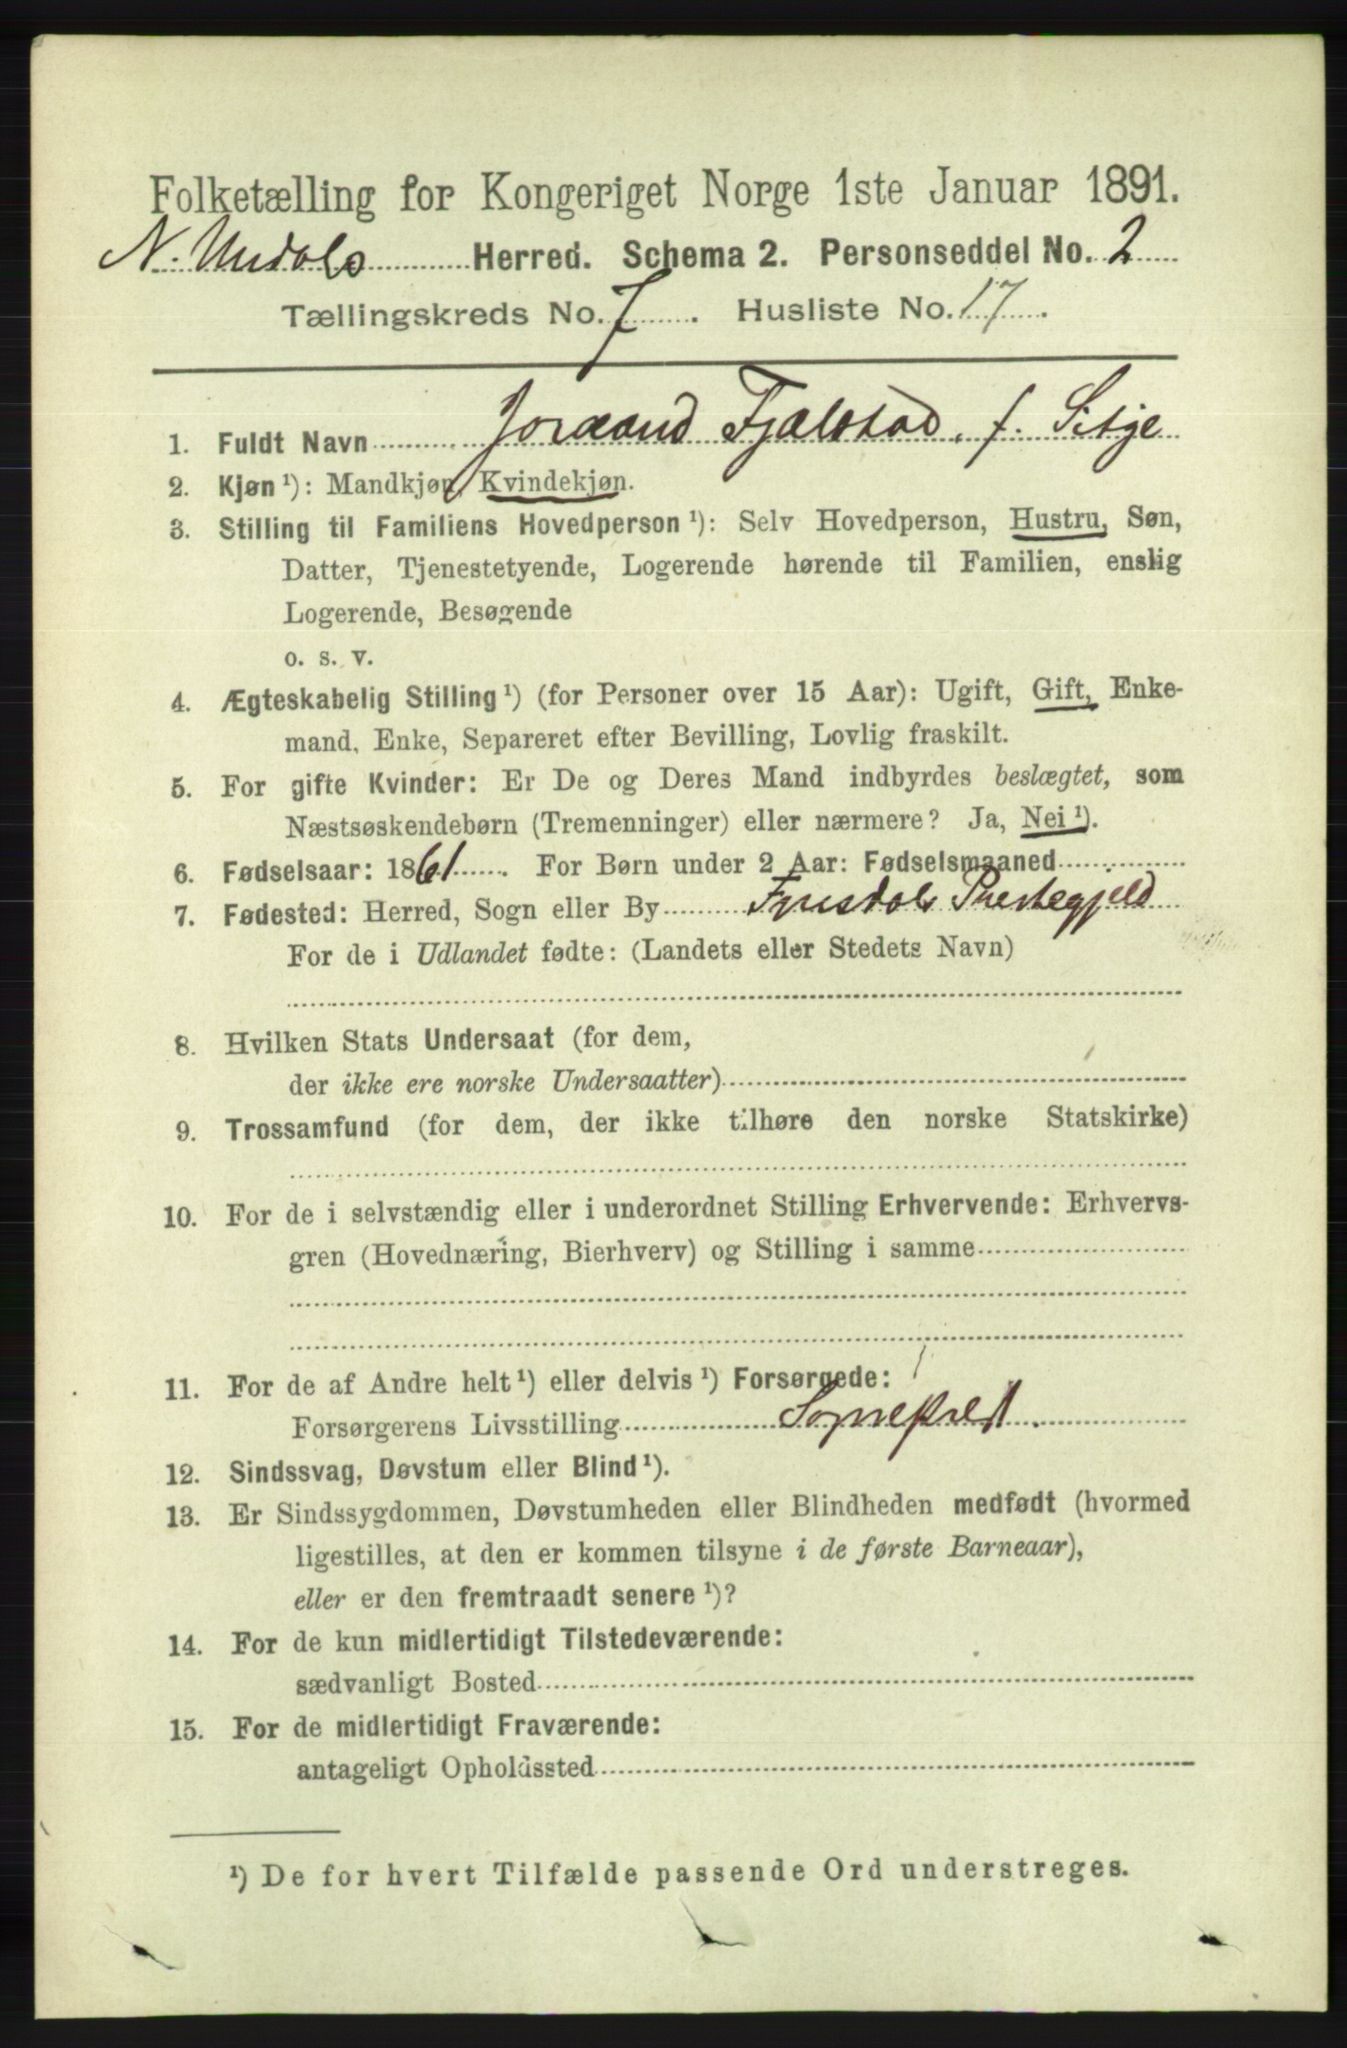 Folketælling for Kongeriget Norge 1ste Januar 1891.
N. Undals Herred. Schema 2. Personseddel No. 2
Tællingskreds No. 7. Husliste No. 17.
1. Fuldt Navn Joraand Fjælstad, f. Sitje
2. Kjøn ¹): Mandkjøn, Kvindekjøn.
3. Stilling til Familiens Hovedperson ¹): Selv Hovedperson, Hustru, Søn,
Datter, Tjenestetyende, Logerende hørende til Familien, enslig
Logerende, Besøgende
o. s. v.
4. Ægteskabelig Stilling ¹) (for Personer over 15 Aar): Ugift, Gift, Enke-
mand, Enke, Separeret efter Bevilling, Lovlig fraskilt.
5. For gifte Kvinder: Er De og Deres Mand indbyrdes beslægtet, som
Næstsøskendebørn (Tremenninger) eller nærmere? Ja, Nei ¹).
6. Fødselsaar: 1861. For Børn under 2 Aar: Fødselsmaaned
7. Fødested: Herred, Sogn eller By Fyrisdals Prestegjeld
For de i Udlandet fødte: (Landets eller Stedets Navn)
8. Hvilken Stats Undersaat (for dem,
der ikke ere norske Undersaatter)
9. Trossamfund (for dem, der ikke tilhøre den norske Statskirke)
10. For de i selvstændig eller i underordnet Stilling Erhvervende: Erhvervs-
gren (Hovednæring, Bierhverv) og Stilling i samme
11. For de af Andre helt ¹) eller delvis ¹) Forsørgede:
Forsørgerens Livsstilling Sogneprest.
12. Sindssvag, Døvstum eller Blind ¹).
13. Er Sindssygdommen, Døvstumheden eller Blindheden medfødt (hvormed
ligestilles, at den er kommen tilsyne i de første Barneaar),
eller er den fremtraadt senere ¹)?
14. For de kun midlertidigt Tilstedeværende:
sædvanligt Bosted
15. For de midlertidigt Fraværende:
antageligt Opholdssted
¹) De for hvert Tilfælde passende Ord understreges.